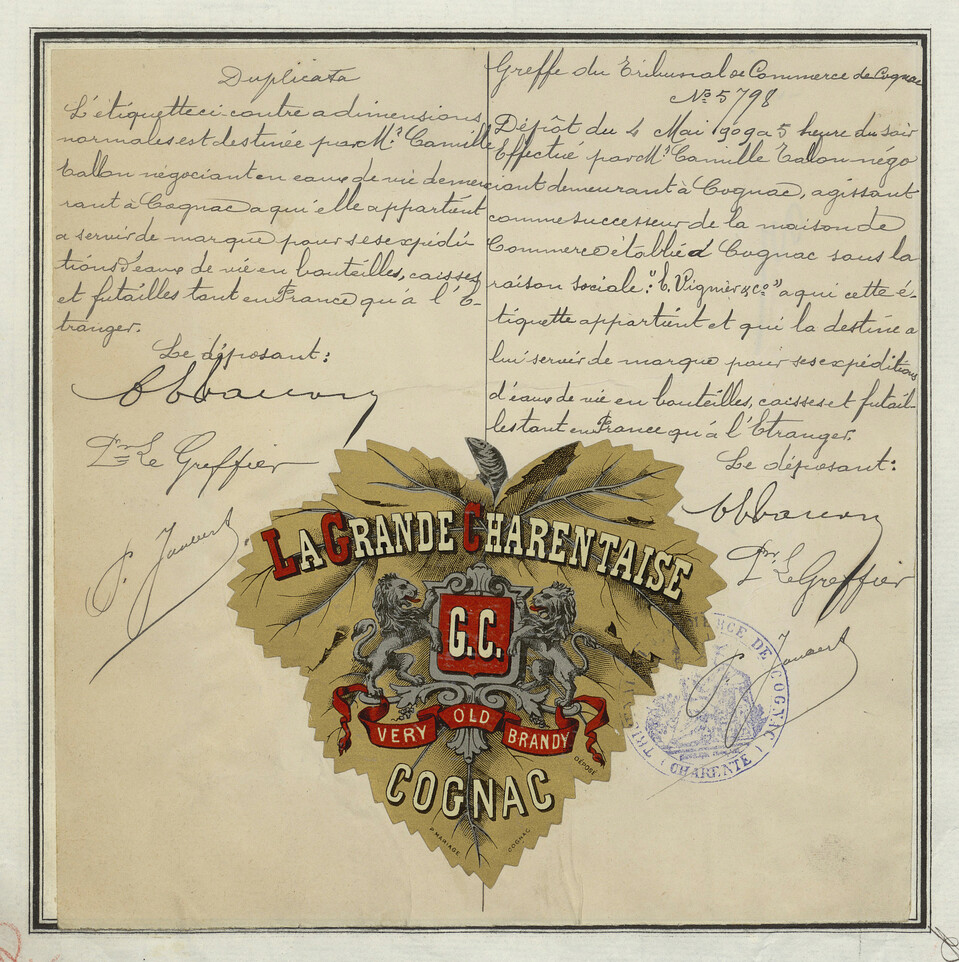 Duplicata
L'étiquette ci-contre a dimensions
normales est destinée par Mr Camille
Tallon négociant en eaux de vie demeu
rant à Cognac a qui elle appartient
a servir de marque pour ses expédi
tions d'eaux de vie en bouteilles, caisses
et futailles tant en France qu'à l'E-
tranger.
Le déposant:
Pr Le Greffier
Greffe du Tribunal de Commerce de Cognac
No 5798
Dépôt du 4 Mai 1909 a 5 heure du soir
Effectué par Mr Camille Tallon négo
ciant demeurant à Cognac, agissant
comme successeur de la maison de
Commerce établie à Cognac sous la
raison sociale: "E. Vignier & Co" a qui cette é-
tiquette appartient et qui la destine a
lui servir de marque pour ses expéditions
d'eaux de vie en bouteilles, caisses et futail-
les tant en France qu'à l'Etranger.
Le déposant:
Pr Le Greffier
LA GRANDE CHARENTAISE
G.C.
VERY OLD BRANDY
DÉPOSÉ
COGNAC
P. MARIAGE COGNAC
DE COGNAC
CHARENTE